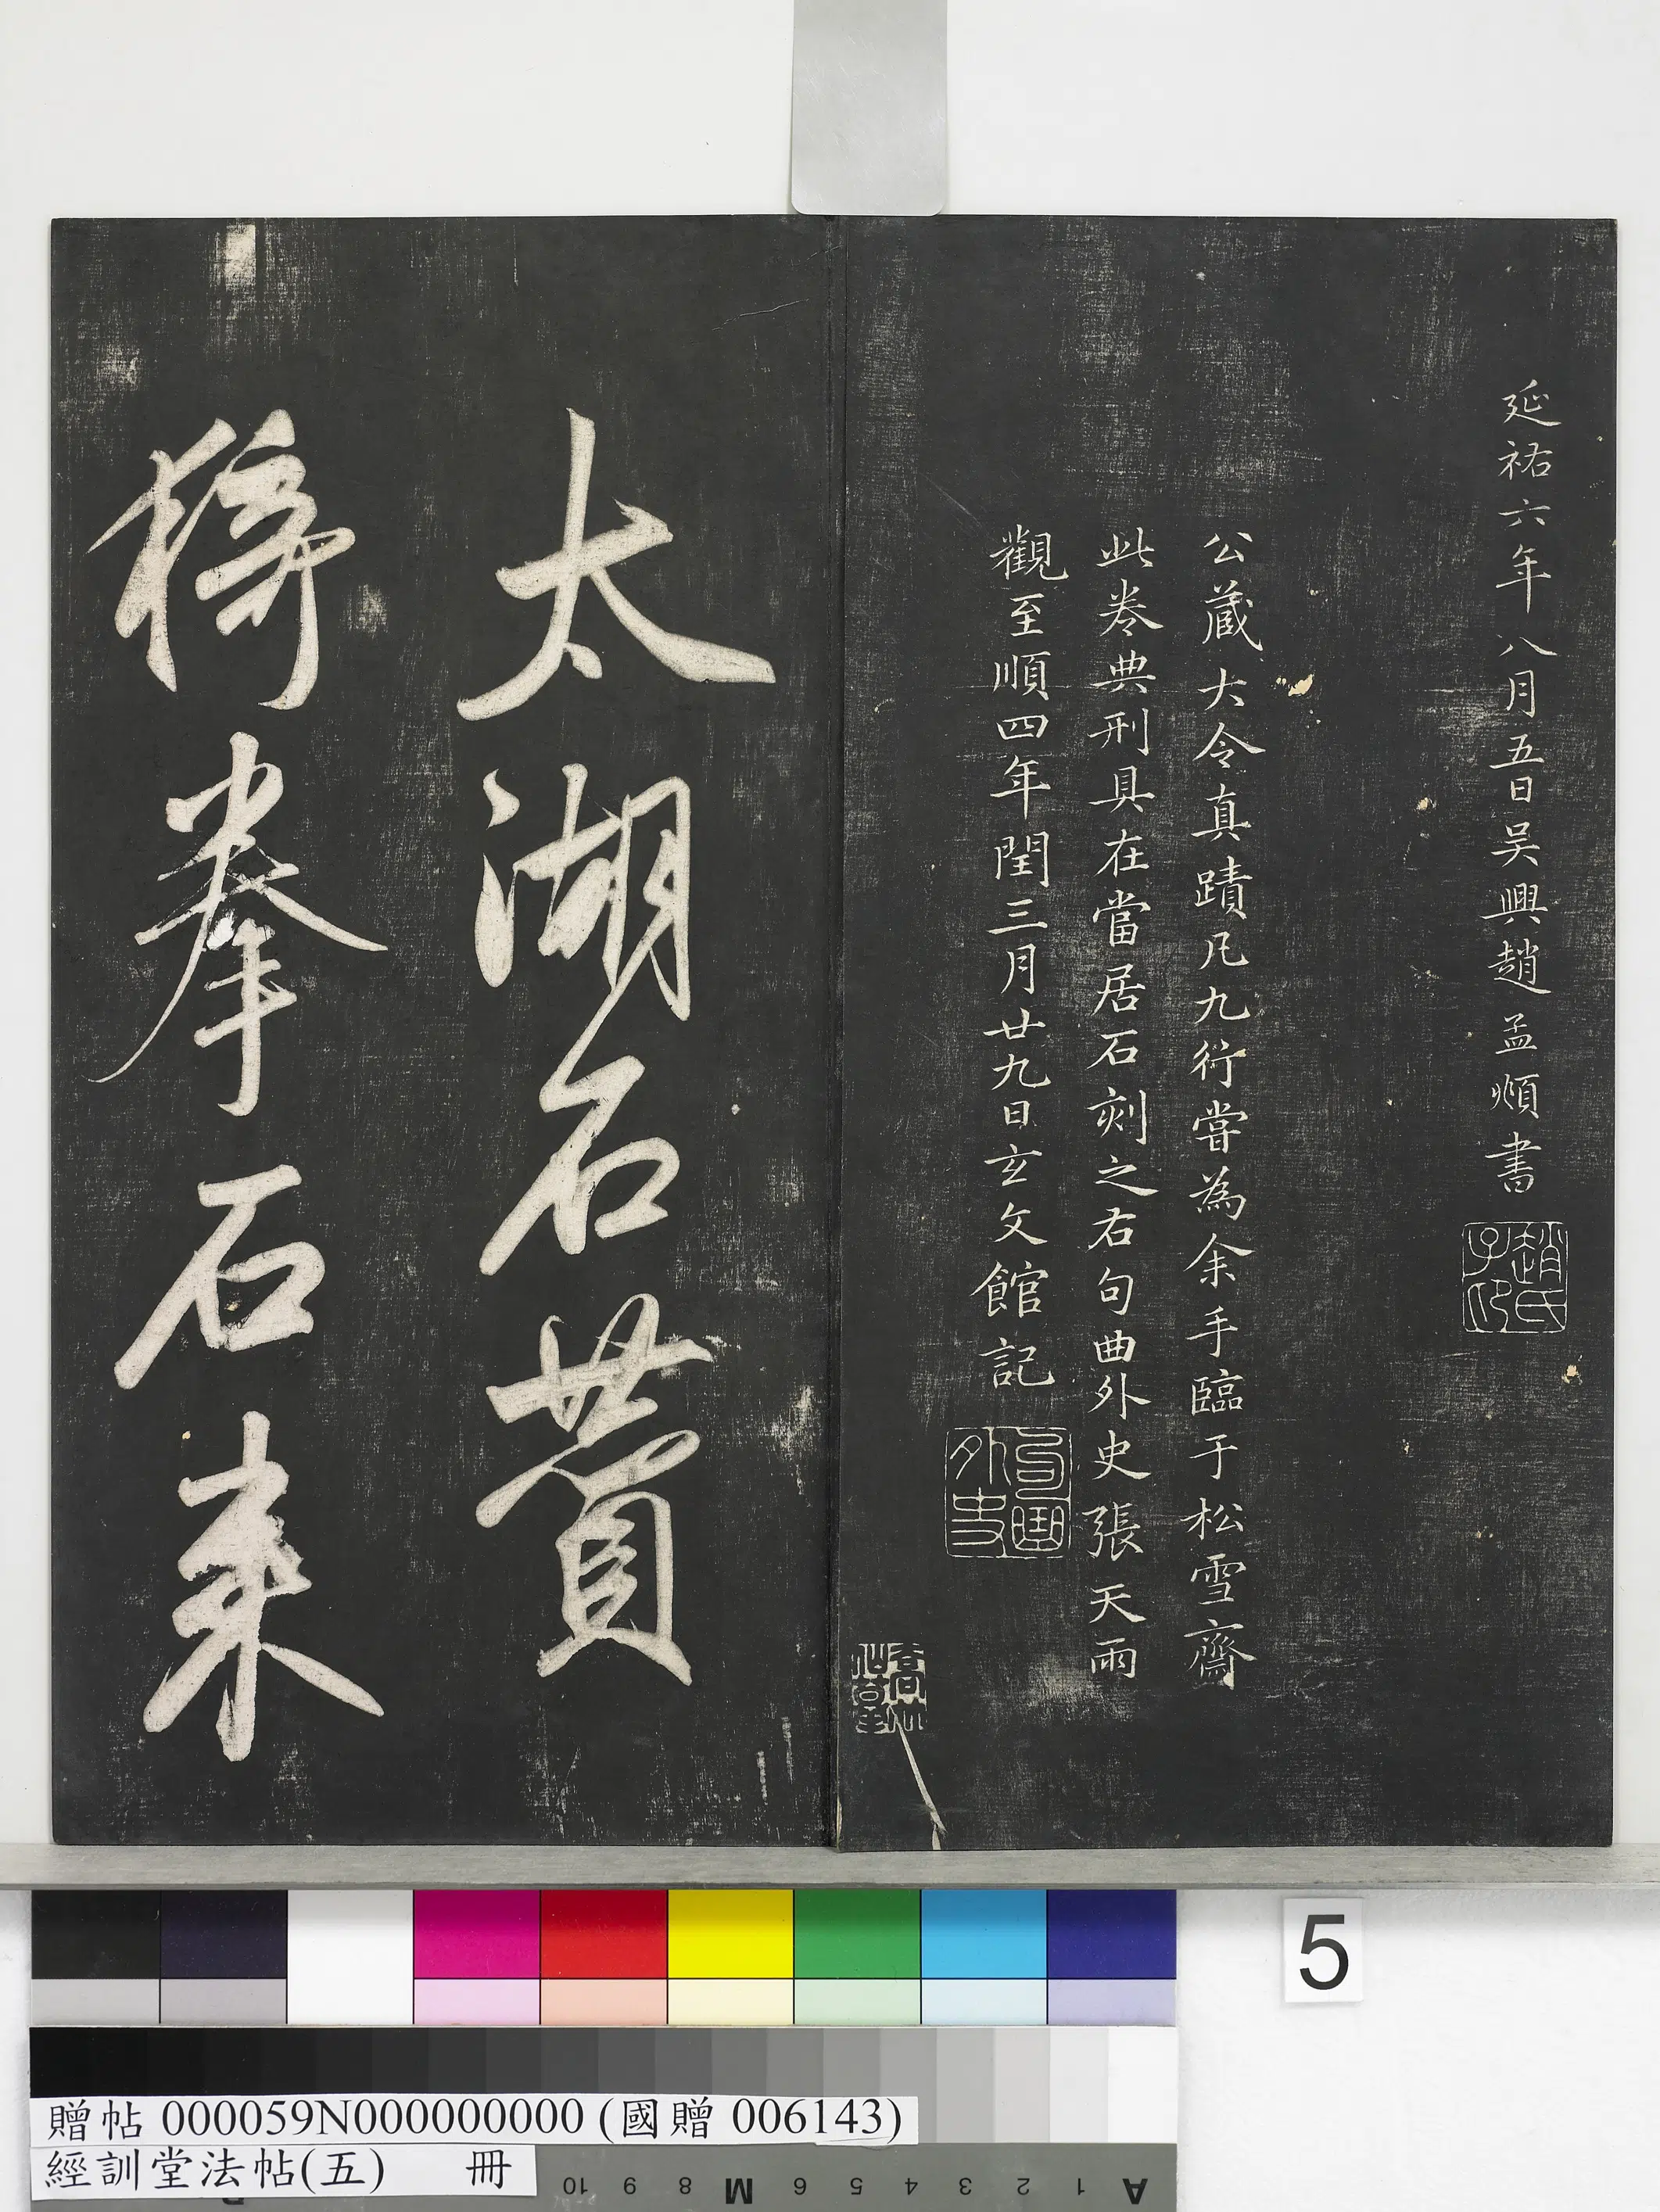 延祐六年八月五日吴興趙孟頫書
趙氏子昂
公藏大令真蹟凡九行嘗為余手臨于松雪齋
此卷典刑具在當居石刻之右句曲外史張天雨
觀至順四年閏三月廿九日玄文館記
句曲外史
太湖石贊
猗拳石来
5
贈帖 000059N000000000 (國贈 006143)
經訓堂法帖(五) 冊
10 9 8 M 6 5 4 3 2 1 A